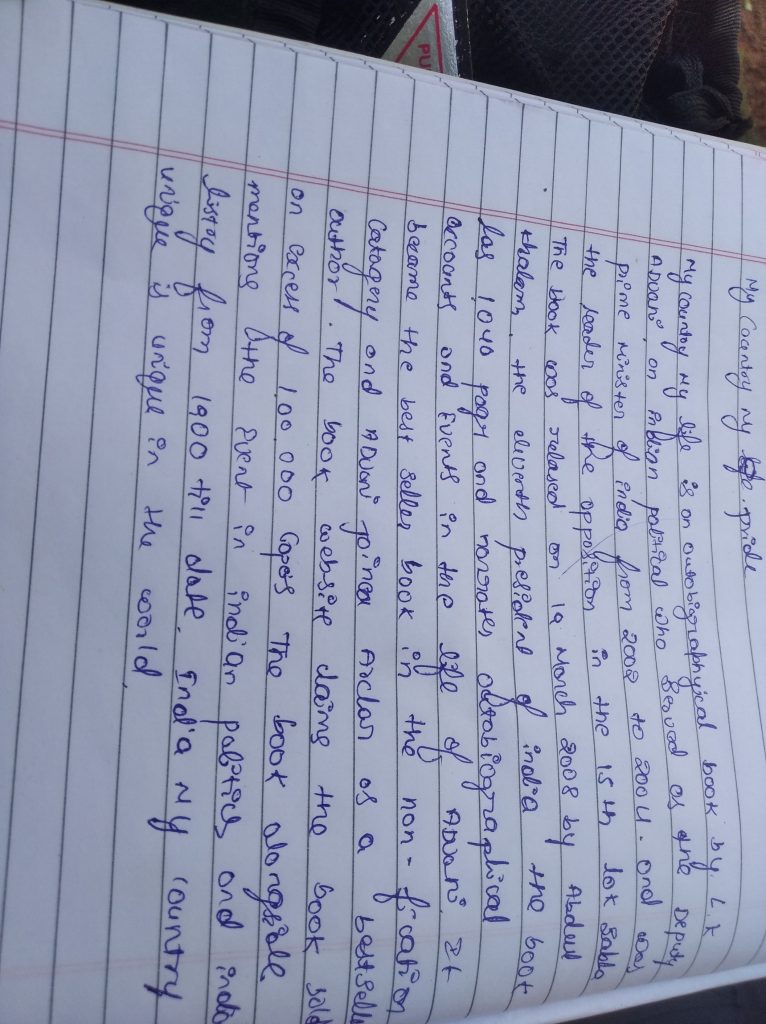 My Country My pride
My Country My life is on autobiographyical book by L.K
Advani, on indian political who served as the Deputy
prime minister of india from 2002 to 2004. and was
the leader of the opposition in the 15th lok sabha
The book was relased on 19 March 2008 by Abdul
khalam, the eleventh president of india the book
has 1,040 pages and norrates autobiographical
accounts and Events in the life of Advani. It
became the best seller book in the non-fication
Catagory and Advani joined Archar as a bestseller
author. The book website claims the book sold
on excess of 1,00,000 Copes The book alongside
mentions the Event in indian politics and india
histoy from 1900 till date. India My country
unique is unique in the world.
PU